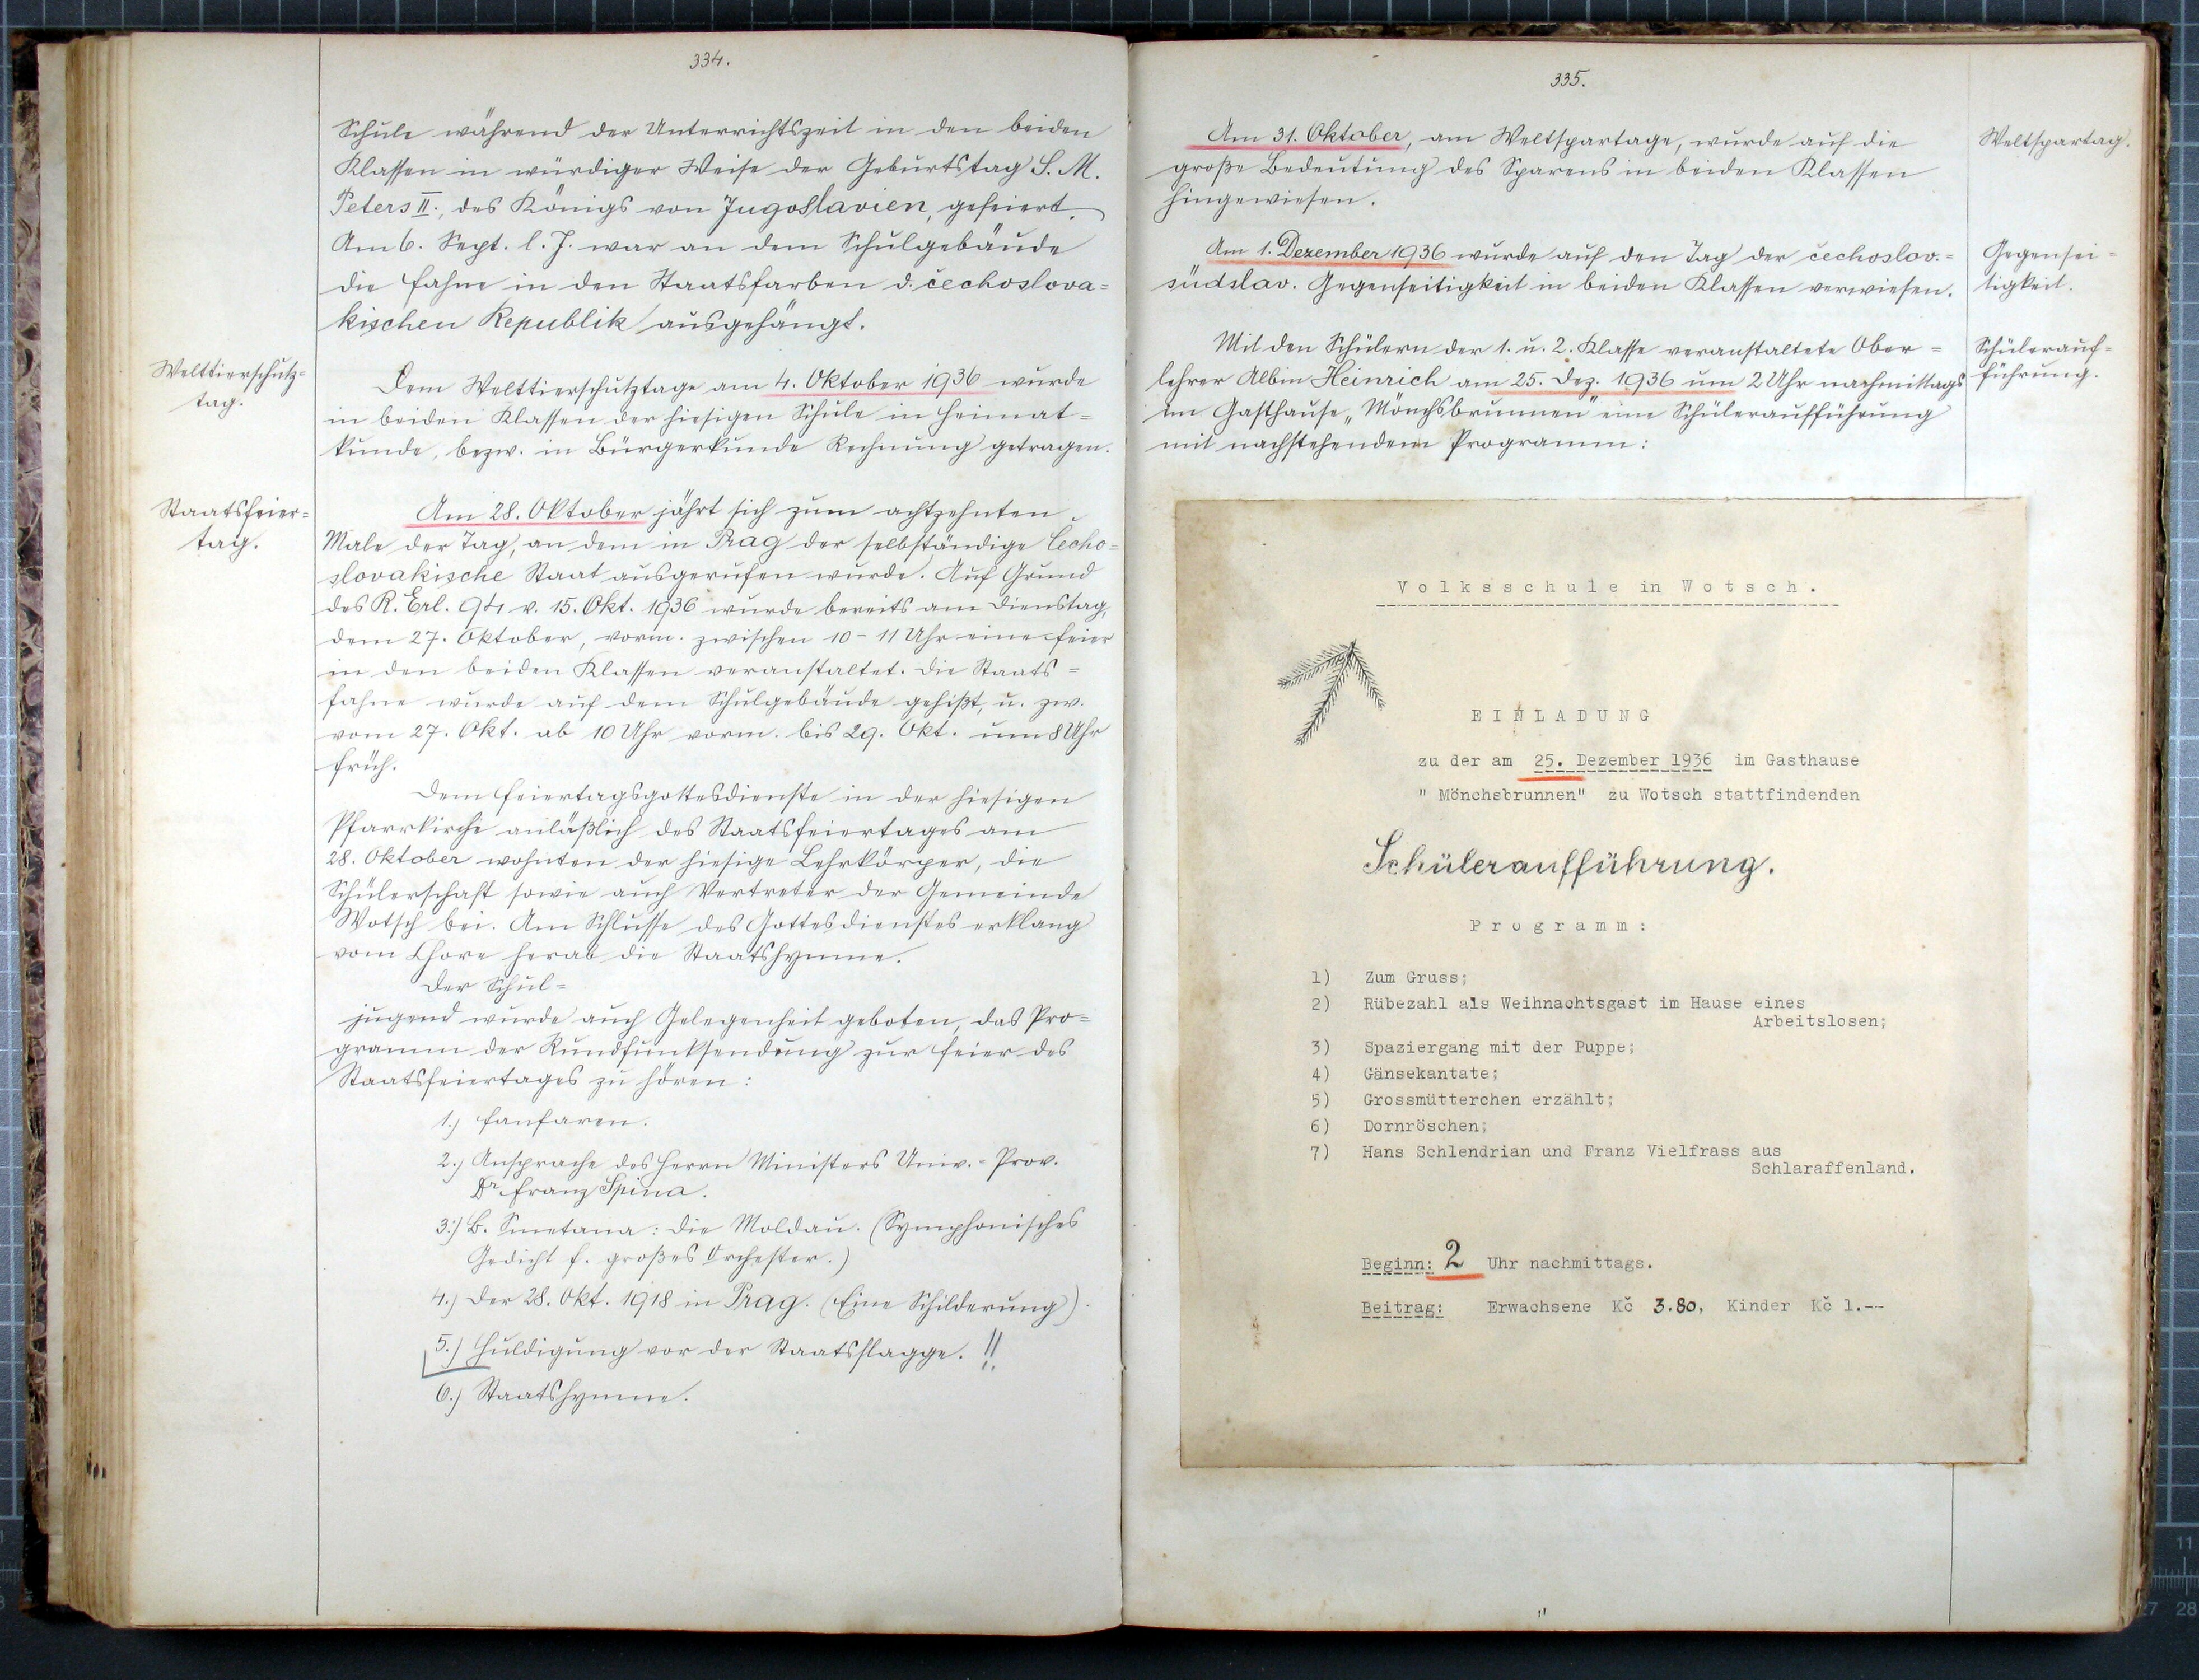 334.
Schule während der Unterrichtszeit in den beiden
Klassen in würdiger Weise der Geburtstag S. M.
Peters II., des Königs von Jugoslavien, gefeiert.
Am 6. Sept. l. J. war an dem Schulgebäude
die Fahne in den Staatsfarben d. čechoslova=
kischen Republik ausgehängt.
Welttierschutz=
tag.
Dem Welttierschutztage am 4. Oktober 1936 wurde
in beiden Klassen der hiesigen Schule in Heimat=
kunde, bezw. in Bürgerkunde Rechnung getragen.
Staatsfeier=
tag.
Am 28. Oktober jährt sich zum achtzehnten
Male der Tag, an dem in Prag der selbständige Čecho=
slovakische Staat ausgerufen wurde. Auf Grund
des R. Erl. 94 v. 15. Okt. 1936 wurde bereits am Dienstag,
dem 27. Oktober, vorm. zwischen 10 - 11 Uhr eine Feier
in den beiden Klassen veranstaltet. Die Staats=
fahne wurde auf dem Schulgebäude gehißt, u. zw.
vom 27. Okt. ab 10 Uhr vorm. bis 29. Okt. um 8 Uhr
früh.
Dem Feiertagsgottesdienste in der hiesigen
Pfarrkirche anläßlich des Staatsfeiertages am
28. Oktober wohnten der hiesige Lehrkörper, die
Schülerschaft sowie auch Vertreter der Gemeinde
Wotsch bei. Am Schlusse des Gottesdienstes erklang
vom Chore herab die Staatshymne.
Der Schul=
jugend wurde auch Gelegenheit geboten, das Pro=
gramm der Rundfunksendung zur Feier des
Staatsfeiertages zu hören:
1.) Fanfaren.
2.) Ansprache des Herrn Ministers Univ.-Prov.
Dr Franz Spina.
3.) B. Smetana: Die Moldau. (Symphonisches
Gedicht f. großes Orchester.)
4.) Der 28. Okt. 1918 in Prag. (Eine Schilderung).
5.) Huldigung vor der Staatsflagge. !!
6.) Staatshymne.
335.
Am 31. Oktober, am Weltspartage, wurde auf die
große Bedeutung des Sparens in beiden Klassen
hingewiesen.
Weltspartag.
Am 1. Dezember 1936 wurde auf den Tag der čechoslov.=
südslav. Gegenseitigkeit in beiden Klassen verwiesen.
Gegensei=
tigkeit.
Mit den Schülern der 1. u. 2. Klasse veranstaltete Ober=
lehrer Albin Heinrich am 25. Dez. 1936 um 2 Uhr nachmittags
im Gasthause „Mönchsbrunnen" eine Schüleraufführung
mit nachstehendem Programm:
Schülerauf=
führung.
Volksschule in Wotsch.
EINLADUNG
zu der am 25. Dezember 1936 im Gasthause
" Mönchsbrunnen" zu Wotsch stattfindenden
Schüleraufführung.
Programm:
1) Zum Gruss;
2) Rübezahl als Weihnachtsgast im Hause eines
Arbeitslosen;
3) Spaziergang mit der Puppe;
4) Gänsekantate;
5) Grossmütterchen erzählt;
6) Dornröschen;
7) Hans Schlendrian und Franz Vielfrass aus
Schlaraffenland.
Beginn: 2 Uhr nachmittags.
Beitrag: Erwachsene Kč 3.80, Kinder Kč 1.--
11
27 28